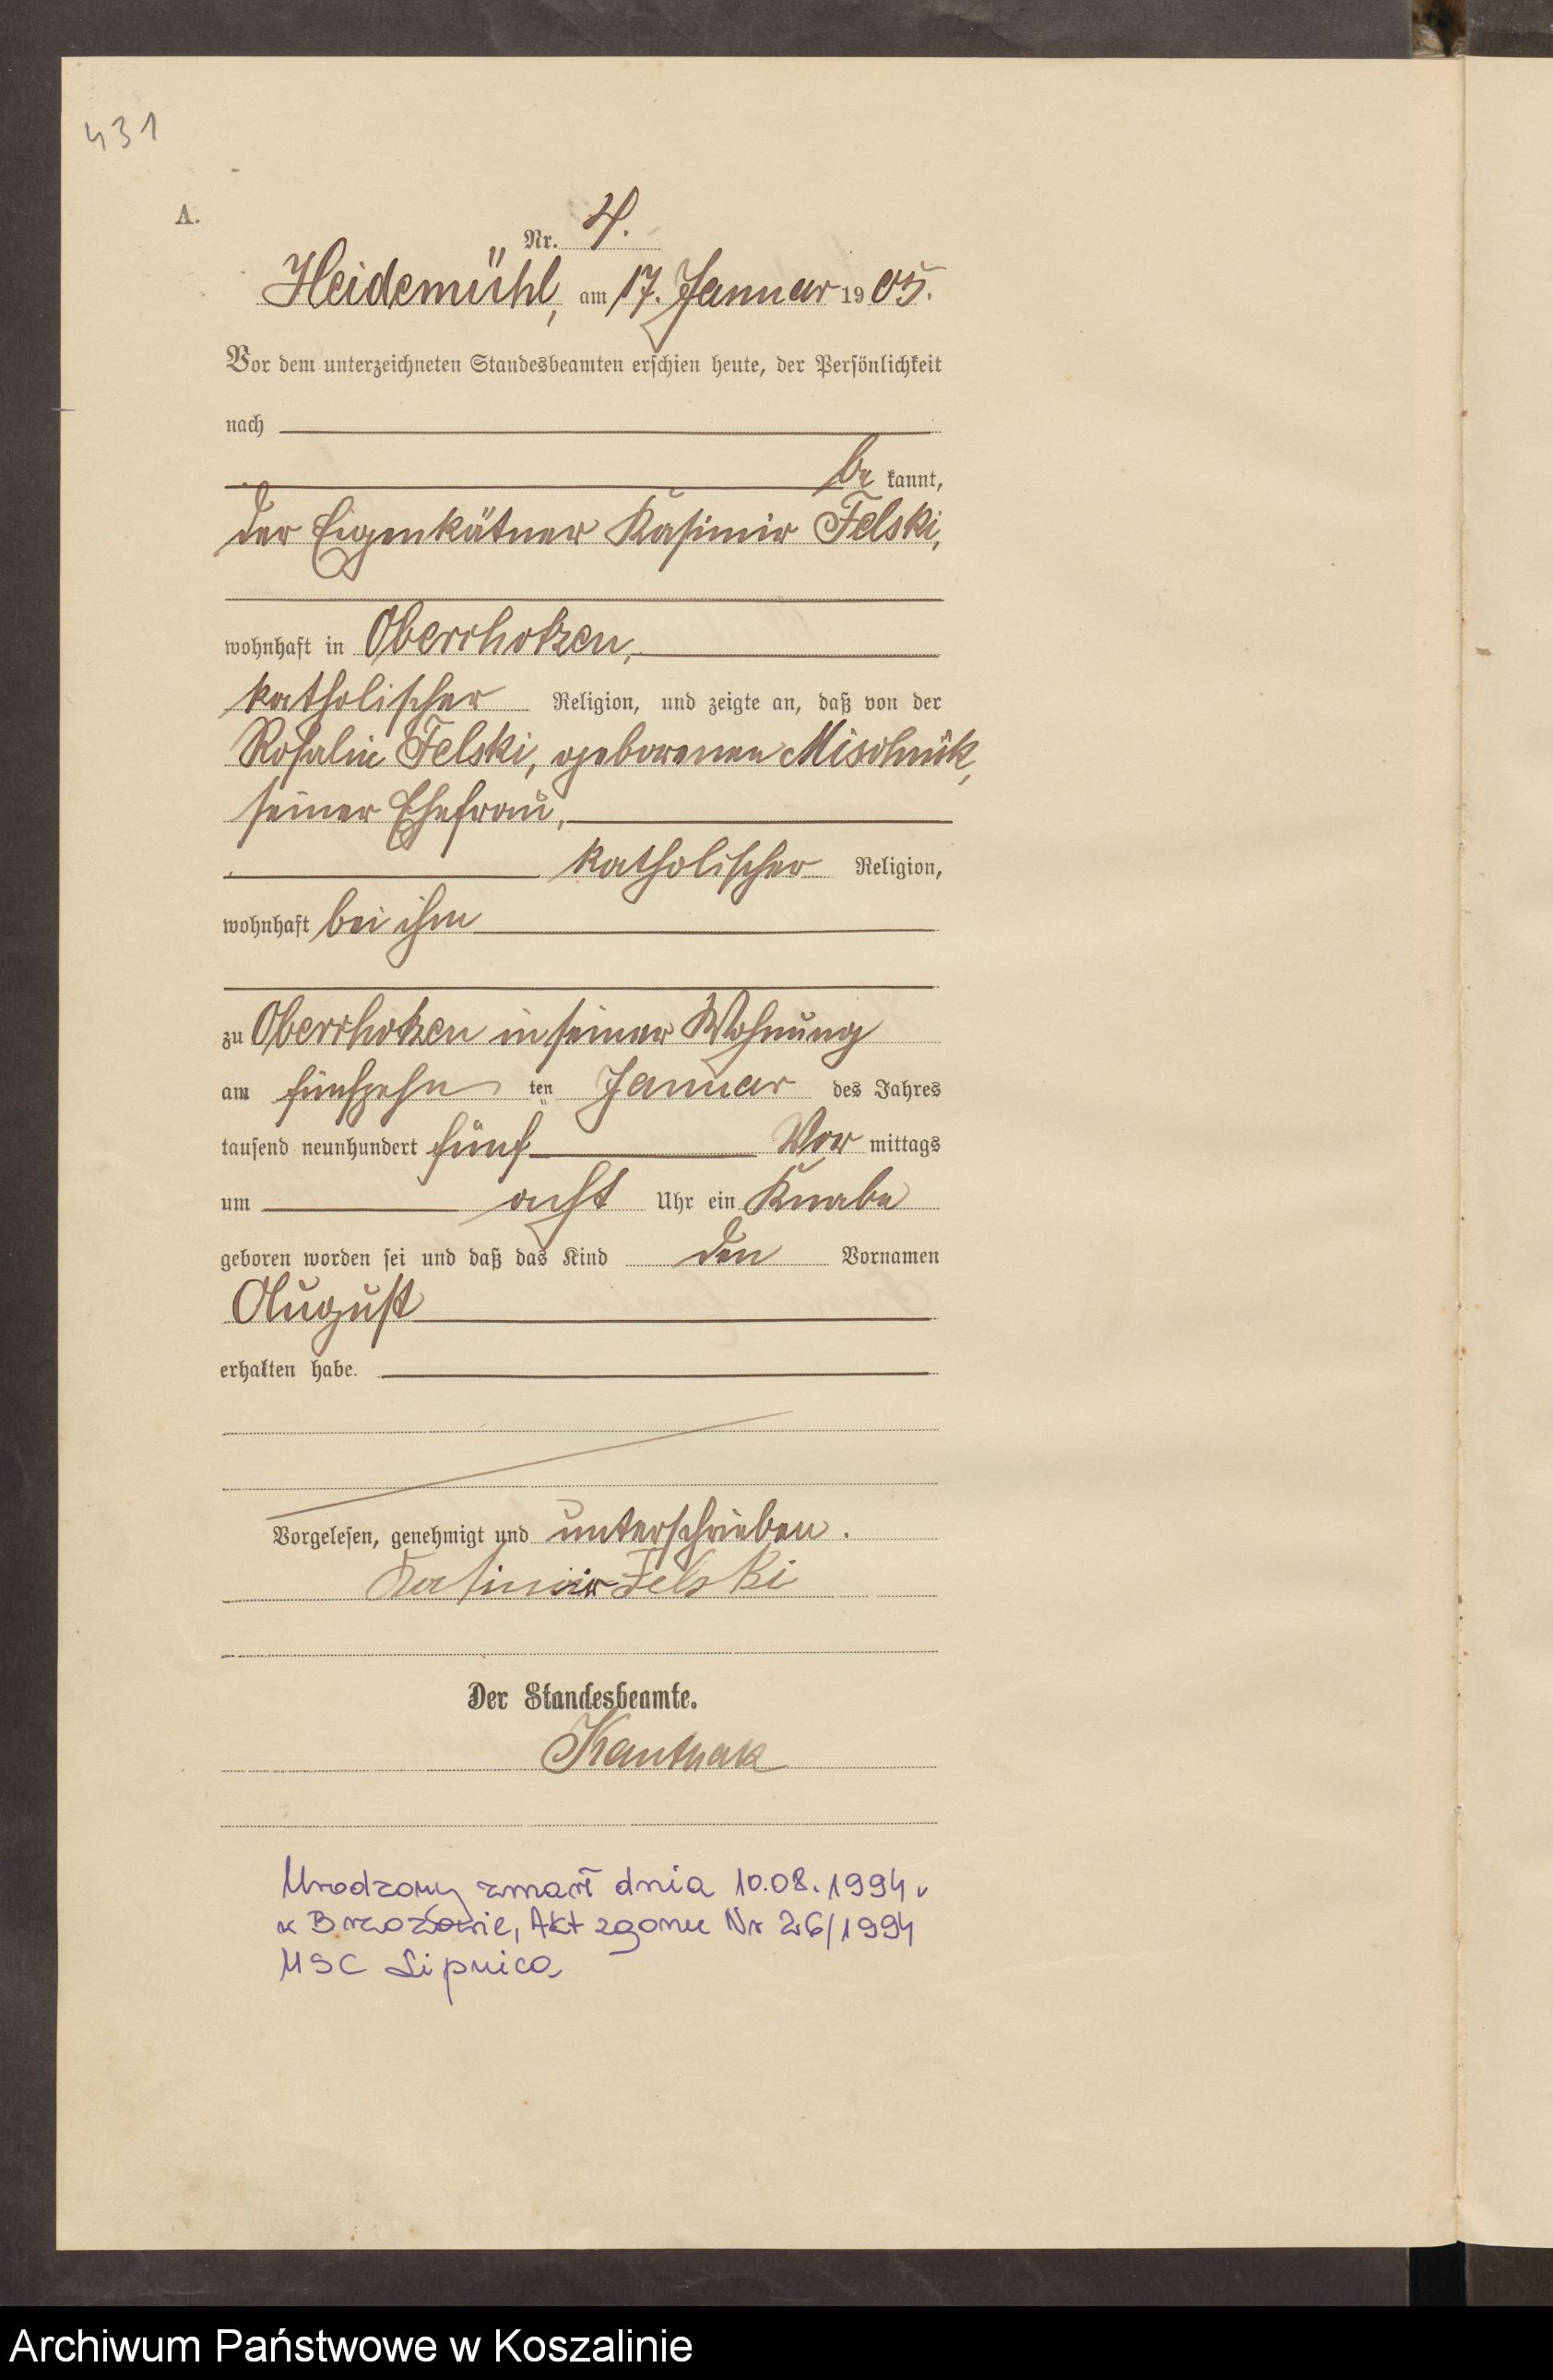 431
A.
Nr. 4.
Heidemühl, am 17. Januar 1905.
Vor dem unterzeichneten Standesbeamten erschien heute, der Persönlichkeit
nach
be kannt,
der Eigenkätner Kasimir Felski,
wohnhaft in Oberrhotzen,
katholischer Religion, und zeigte an, daß von der
Rosalie Felski, geborenen Mischnik,
seiner Ehefrau,
katholischer Religion,
wohnhaft bei ihm
zu Oberrhotzen in seiner Wohnung
am fünfzehn ten Januar des Jahres
tausend neunhundert fünf Vor mittags
um acht Uhr ein Knabe
geboren worden sei und daß das Kind den Vornamen
August
erhalten habe.
Vorgelesen, genehmigt und unterschrieben.
Kasimir Felski
Der Standesbeamte.
Kautnak
Urodzony zmarł dnia 10.08.1994 r
w Brzozowie, Akt zgonu Nr 26/1994
USC Lipnica
Archiwum Państwowe w Koszalinie